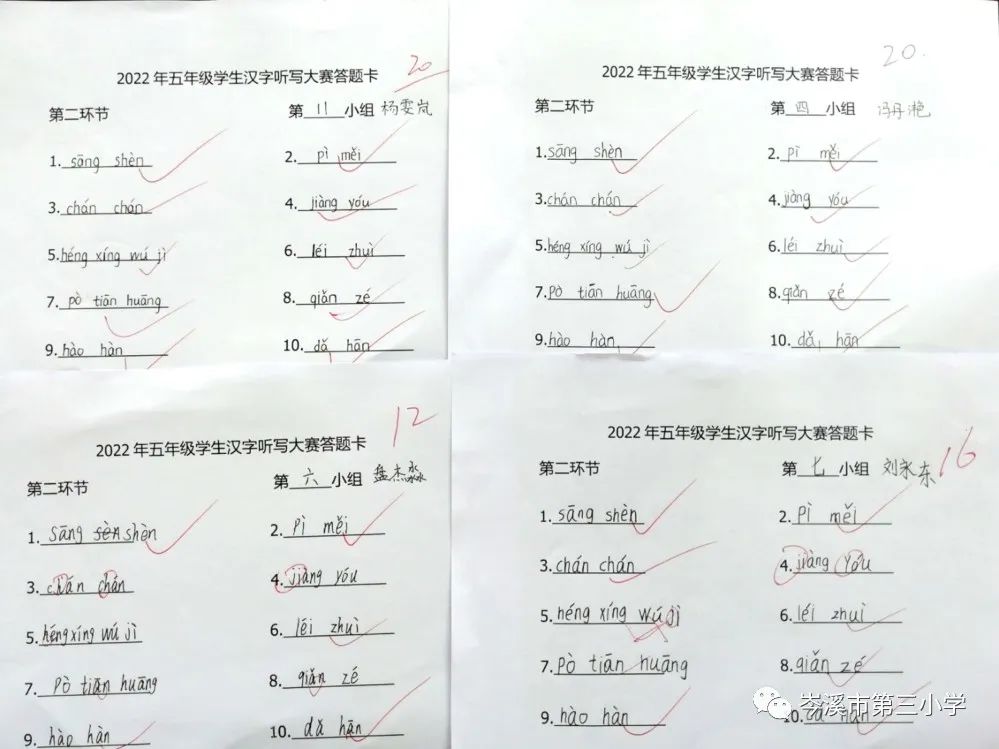 2022 年五年级学生汉字听写大赛答题卡 20
第二环节 第 八 小组 杨雯岚
1. sāng shèn 2. pì měi
3. chán chán 4. jiàng yóu
5. héng xíng wú jì 6. léi zhuì
7. pò tiān huāng 8. qiǎn zé
9. hào hàn 10. dǎ hān
2022 年五年级学生汉字听写大赛答题卡 20.
第二环节 第 四 小组 冯丹滟
1. sāng shèn 2. pì měi
3. chán chán 4. jiàng yóu
5. héng xíng wú jì 6. léi zhuì
7. Pò tiān huāng 8. qiǎn zé
9. hào hàn 10. dǎ hān
2022 年五年级学生汉字听写大赛答题卡 12
第二环节 第 六 小组 盘杰淼
1. sāng shèn 2. pì měi
3. chán chán 4. jiàng yóu
5. héng xíng wú jì 6. léi zhuì
7. pò tiān huāng 8. qiǎn zé
9. hào hàn 10. dǎ hān
2022 年五年级学生汉字听写大赛答题卡 16
第二环节 第 七 小组 刘永东
1. sāng shèn 2. pì měi
3. chán chán 4. jiàng yóu
5. héng xíng wú jì 6. léi zhuì
7. pò tiān huāng 8. qiǎn zé
9. hào hàn 10. hān
岑溪市第三小学